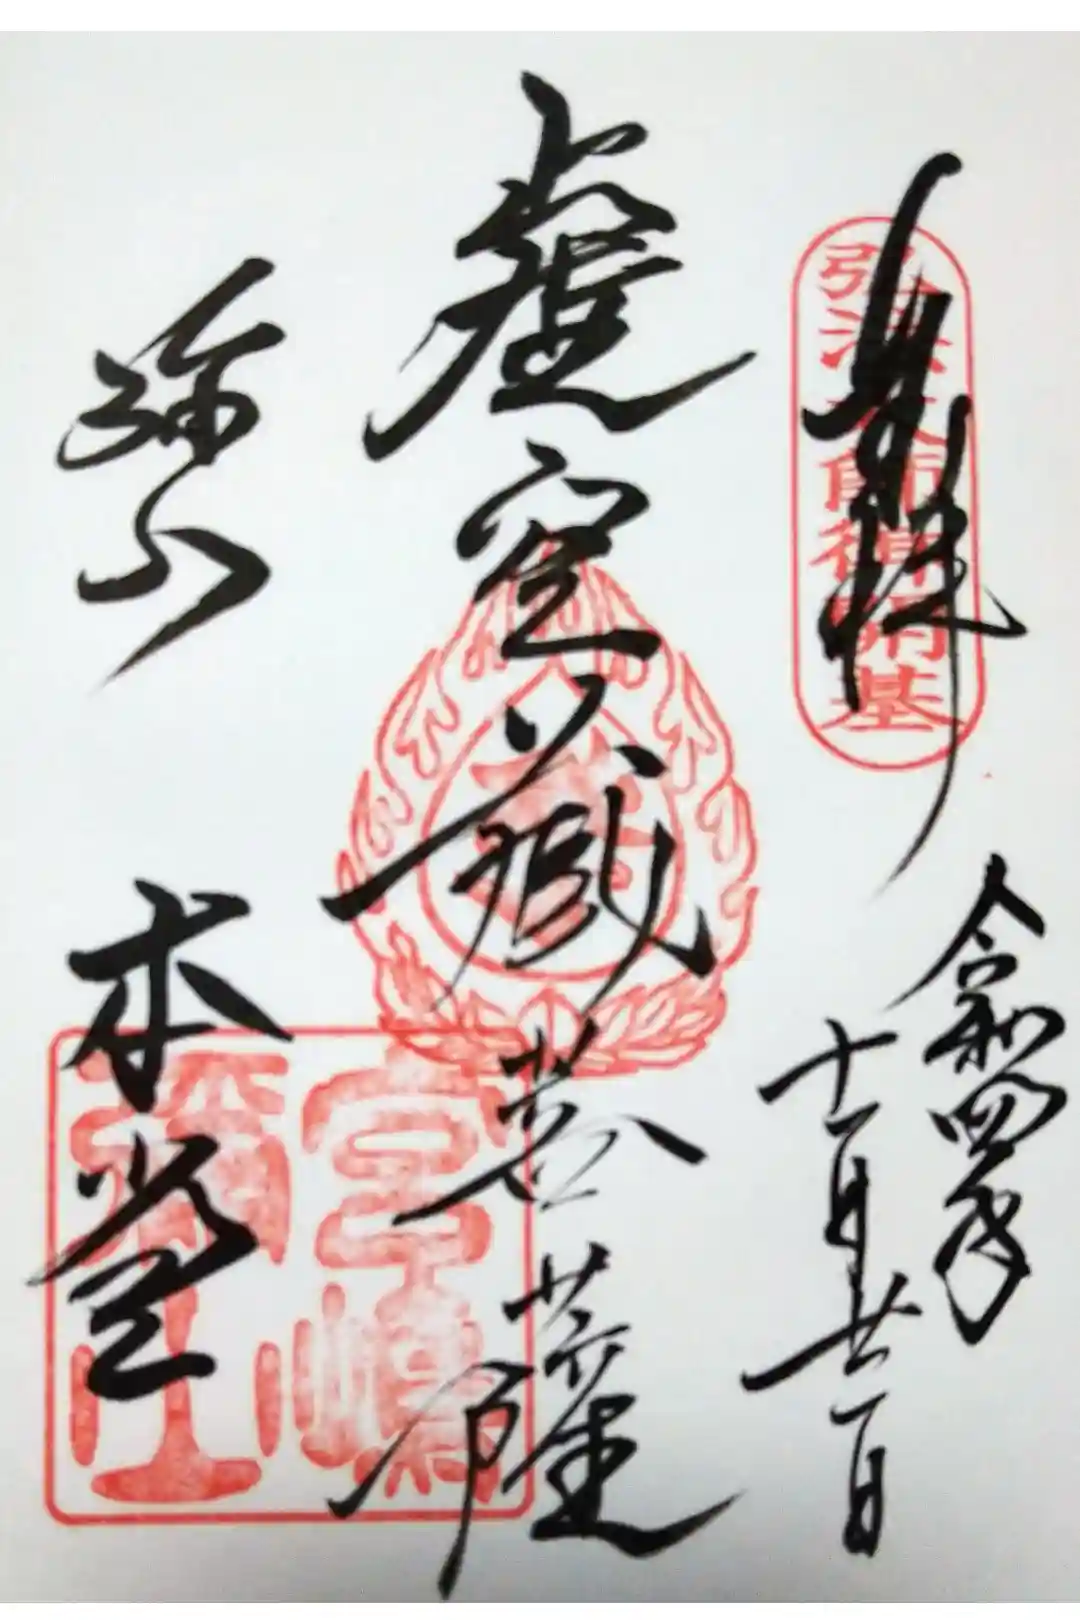 奉拝
弘法大師御開基
令和四年
十一月廿一日
虚空蔵菩薩
宮嶋
彌山
弥山
本堂